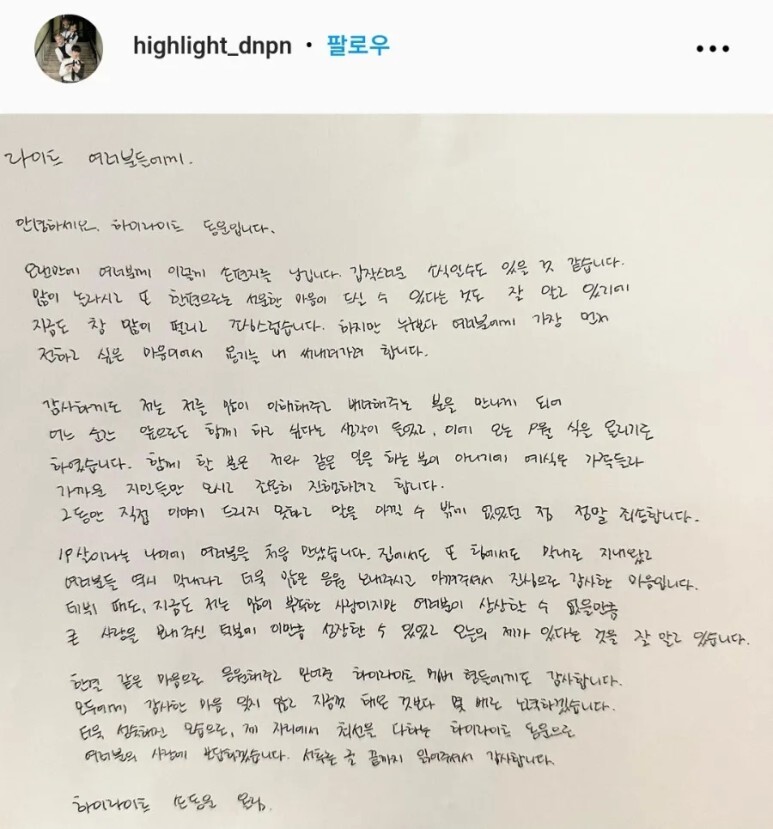 highlight_dnpn • 팔로우
라이트 여러분들에게.
안녕하세요. 하이라이트 동운입니다.
오랜만에 여러분께 이렇게 손편지를 남깁니다. 갑작스러운 소식일수도 있을 것 같습니다.
많이 놀라시고 또 한편으로는 서운한 마음이 드실 수 있다는 것도 잘 알고 있기에
지금도 참 많이 떨리고 조심스럽습니다. 하지만 누구보다 여러분에게 가장 먼저
전하고 싶은 마음이어서 용기를 내 써내려가려 합니다.
감사하게도 저는 저를 많이 이해해주고 배려해주는 분을 만나게 되어
어느 순간 앞으로도 함께 하고 싶다는 생각이 들었고, 이에 오는 9월 식을 올리기로
하였습니다. 함께 할 분은 저와 같은 일을 하는 분이 아니기에 예식은 가족들과
가까운 지인들만 모시고 조용히 진행하려고 합니다.
그동안 직접 이야기 드리지 못하고 말을 아낄 수 밖에 없었던 점 정말 죄송합니다.
19살이라는 나이에 여러분을 처음 만났습니다. 집에서도 또 팀에서도 막내로 지내왔고
여러분들 역시 막내라고 더욱 많은 응원 보내주시고 아껴주셔서 진심으로 감사한 마음입니다.
데뷔 때도, 지금도 저는 많이 부족한 사람이지만 여러분이 상상할 수 없을만큼
큰 사랑을 보내 주신 덕분에 이만큼 성장할 수 있었고 오늘의 제가 있다는 것을 잘 알고 있습니다.
한결 같은 마음으로 응원해주고 믿어준 하이라이트 멤버 형들에게도 감사합니다.
모두에게 감사한 마음 잊지 않고 지금껏 해온 것보다 몇 배로 노력하겠습니다.
더욱 성숙해진 모습으로, 제 자리에서 최선을 다하는 하이라이트 동운으로
여러분의 사랑에 보답하겠습니다. 서투른 글 끝까지 읽어주셔서 감사합니다.
하이라이트 손동운 올림.